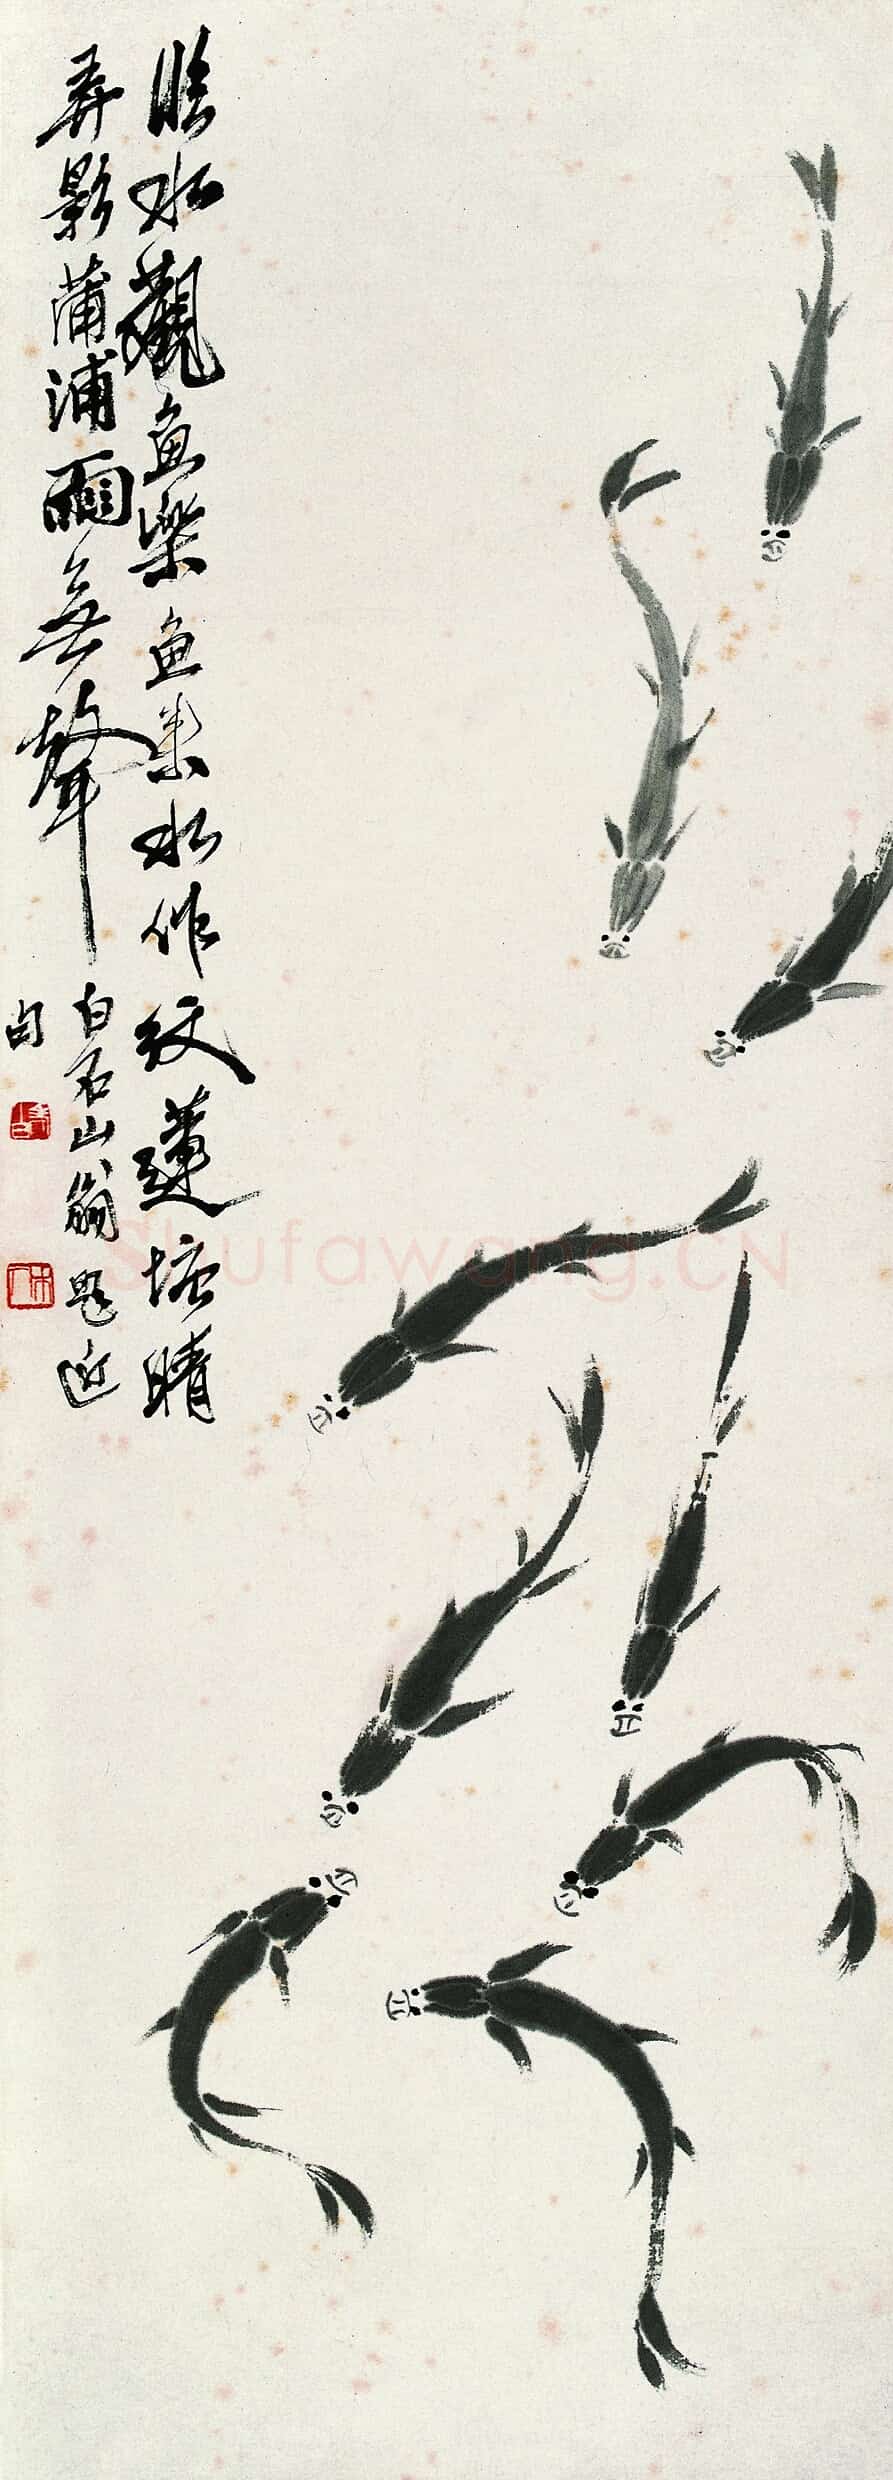 臨水觀魚樂魚樂水作紋蓮塘晴
弄影蒲浦雨無聲
白石山翁題近
句
Shufawang.CN